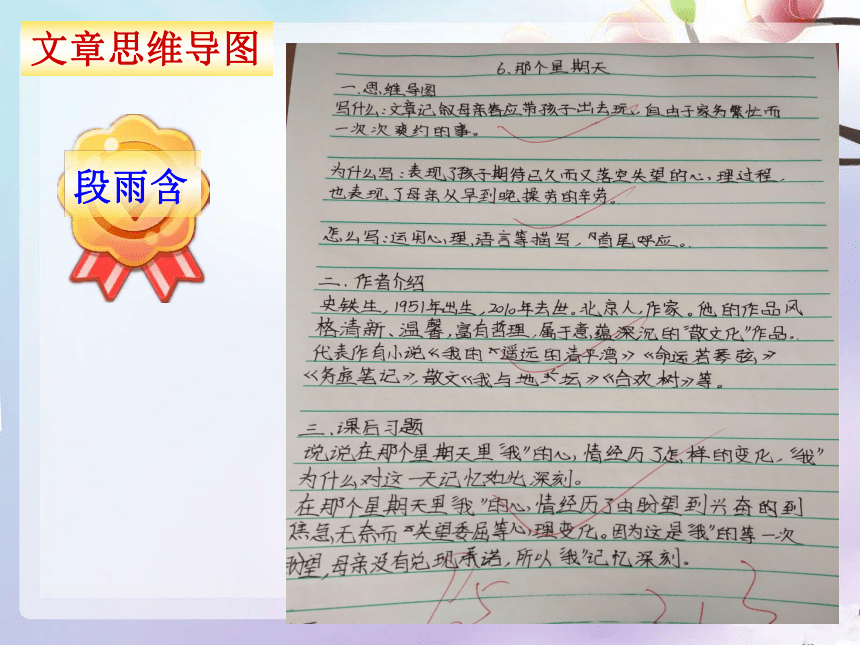 文章思维导图
段雨含
6.那个星期天
一.思维导图
写什么:文章记叙母亲答应带孩子出去玩、但由于家务繁忙而
一次次爽约的事。
为什么写:表现了孩子期待已久而又落空失望的心理过程.
也表现了母亲从早到晚操劳的辛劳。
怎么写:运用心理,语言等描写,首尾呼应。
二.作者介绍
史铁生,1951年出生,2010年去世。北京人,作家。他的作品风
格清新、温馨,富有哲理,属于意蕴深沉的“散文化”作品.
代表作有小说《我的遥远的清平湾》《命运若琴弦》
《务虚笔记》,散文《我与地坛》《合欢树》等。
三.课后习题
说说在那个星期天里“我”的心情经历了怎样的变化,“我”
为什么对这一天记忆如此深刻。
在那个星期天里“我”的心情经历了由盼望到兴奋的到
焦急无奈而失望委屈等心理变化。因为这是“我”的第一次
盼望,母亲没有兑现承诺,所以“我”记忆深刻。